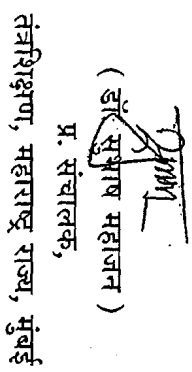 ( डॉ. सुभाष महाजन )
प्र. संचालक,
तंत्रशिक्षण, महाराष्ट्र राज्य, मुंबई